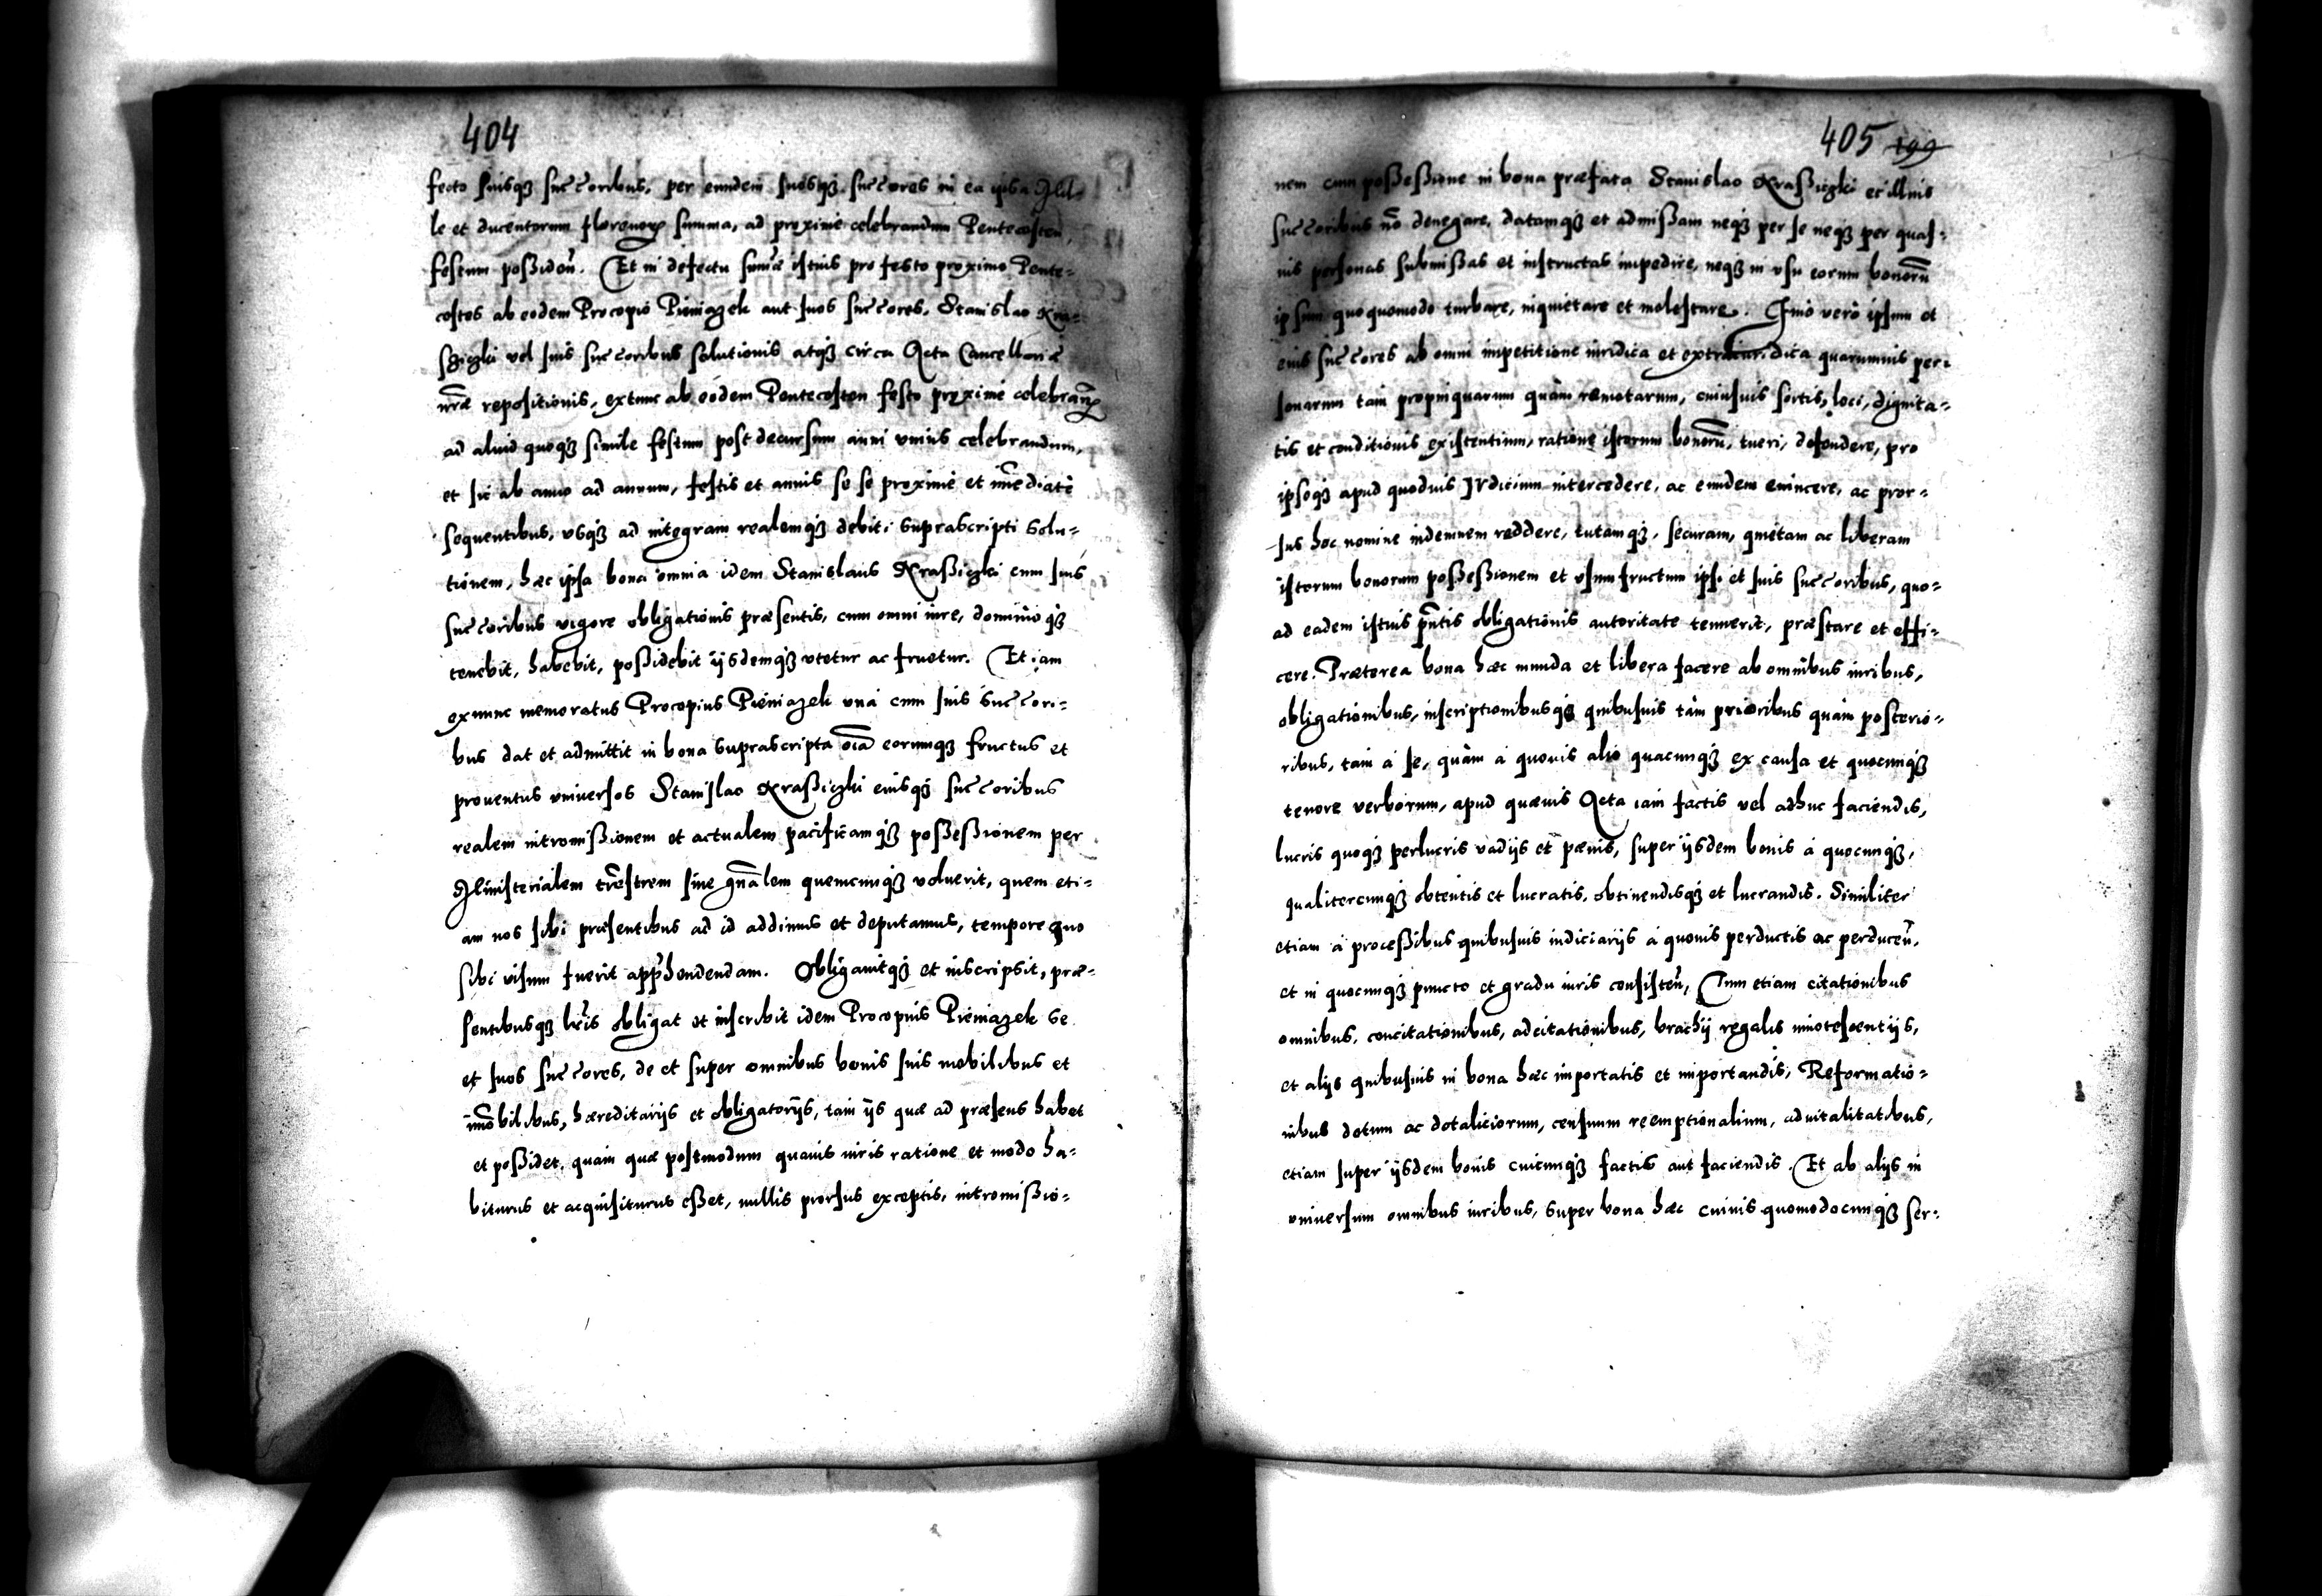 404
fecto suisq₃ succoribus, per eundem suosq₃ succores in ea ipsa Mil-
le et ducentorum florenorꝝ summa, ad proxime celebrandum Pentecosten
festum possiden̄. Et in defectu sum̄æ istius pro festo proximo Pente-
costes ab eodem Procopio Pieniazek aut suos succores, Stanislao Kra-
sziczki vel suis succoribus solutionis atq₃ circa Acta Cancellariæ
nr̄æ repositionis, extunc ab eodem Pentecosten festo proximè celebran̄
ad aliud quoq₃ simile festum post decursum anni unius celebrandum,
et sic ab anno ad annum, festis et annis se se proximè et im̄ediatè
sequentibus, usq₃ ad integram realemq₃ debiti suprascripti solu-
tionem, hæc ipsa bona omnia idem Stanislaus Kraßiczki cum suis
succoribus vigore obligationis præsentis, cum omni iure, dominioq₃
tenebit, habebit, poßidebit ijsdemq₃ utetur ac fruetur. Et iam
exnunc memoratus Procopius Pieniazek unà cum suis succori-
bus dat et admittit in bona suprascripta oīa eorumq₃ fructus et
proventus universos Stanislao Kraßiczki eiusq₃ succoribus
realem intromißionem et actualem pacificamq₃ poßeßionem per
Ministerialem trr̄estrem sive gn̄alem quemcunq₃ voluerit, quem eti-
am nos sibi præsentibus ad id addimus et deputamus, tempore quo
sibi visum fuerit app̄hendendam. Obligavitq₃ et inscripsit, præ-
sentibusq₃ lr̄is obligat et inscribit idem Procopius Pieniazek se
et suos succores, de et super omnibus bonis suis mobilibus et
im̄obilibus, hæreditarijs et obligatorijs, tam ijs quæ ad præsens habet
et poßidet, quam quæ postmodum quavis iuris ratione et modo ha-
biturus et acquisiturus eßet, nullis prorsus exceptis, intromißio-
405 199
nem cum poßeßione in bona præfata Stanislao Kraßiczki et illius
succoribus nō denegare, datamq₃ et admißam neq₃ per se neq₃ per quas-
vis personas submißas et instructas impedire, neq₃ in usu eorum bonorū
ipsum quoquomodo turbare, inquietare et molestare. Imò verò ipsum et
eius succores ab omni impetitione iuridica et extraiuridica quarumvis per-
sonarum tam propinquarum quàm remotarum, cuiusvis sortis, loci, dignita-
tis et conditionis existentium, ratione istorum bonorū, tueri, defendere, pro
ipsoq₃ apud quodvis Iudicium intercedere, ac eundem evincere, ac pror-
sus hoc nomine indemnem reddere, tutamq₃, securam, quietam ac liberam
istorum bonorum poßeßionem et usumfructum ipsi et suis succoribus, quo-
ad eadem istius pn̄tis obligationis autoritate tenuerit, præstare et effi-
cere. Præterea bona hæc munda et libera facere ab omnibus iuribus,
obligationibus, inscriptionibusq₃ quibusvis tàm prioribus quàm posterio-
ribus, tam à se, quàm à quovis alio quacunq₃ ex causa et quocunq₃
tenore verborum, apud quævis Acta iam factis vel adhuc faciendis,
lucris quoq₃ perlucris vadijs et pænis, super ijsdem bonis à quocunq₃,
qualitercunq₃ obtentis et lucratis, obtinendisq₃ et lucrandis. Similiter
etiam à proceßibus quibusvis iudiciarijs à quovis perductis ac perducen̄,
et in quocunq₃ puncto et gradu iuris consisten̄, Tum etiam citationibus
omnibus, concitationibus, adcitationibus, brachij regalis innotescentijs,
et alijs quibusvis in bona hæc importatis et importandis, Reformatio-
nibus dotum ac dotaliciorum, censuum reemptionalium, advitalitatibus,
etiam super ijsdem bonis cuicunq₃ factis aut faciendis. Et ab alijs in
universum omnibus iuribus, super bona hæc cuivis quomodocunq₃ ser-